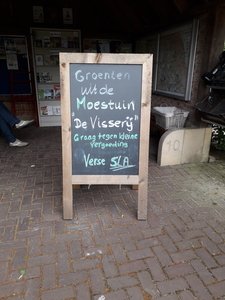 Groenten
uit de
Moestuin
"De Visserij"
Graag tegen kleine
vergoeding
Verse SLA.
10